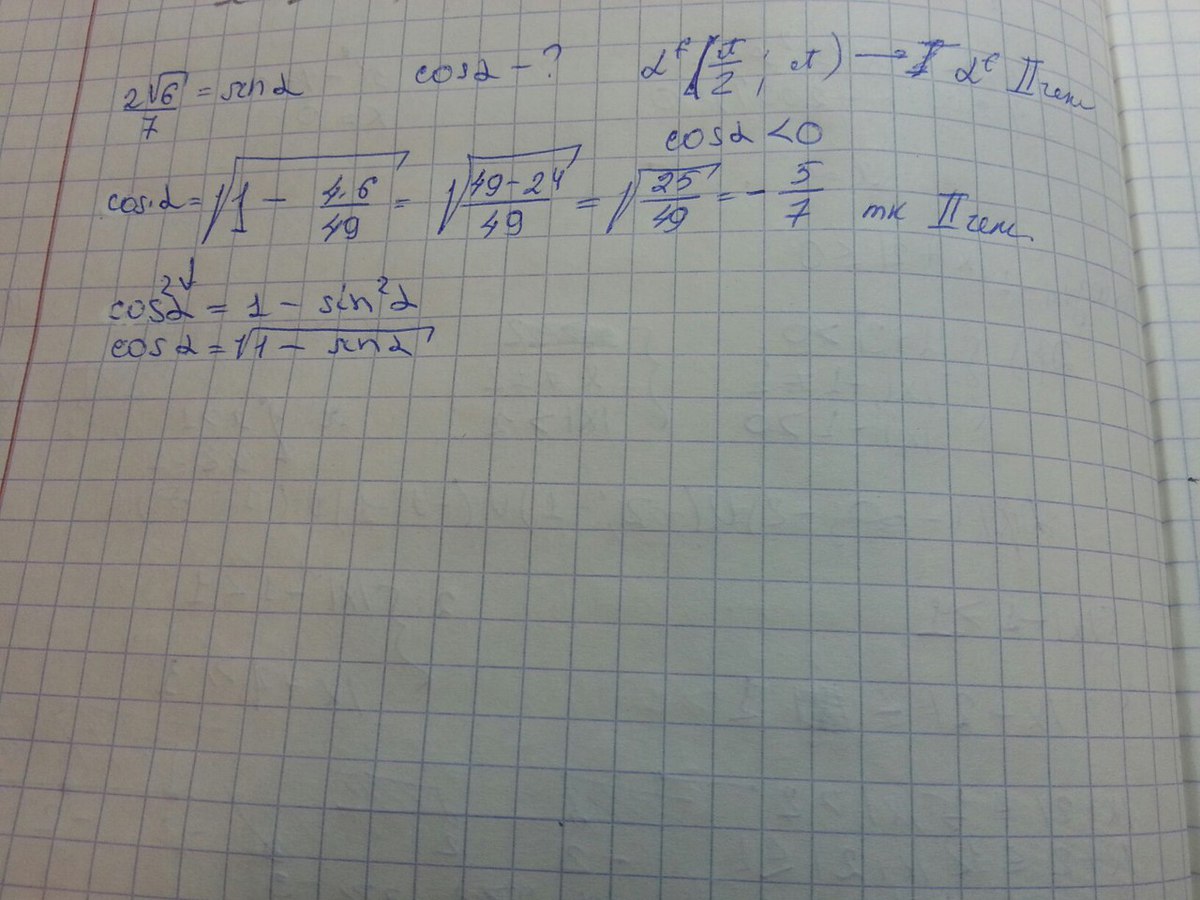 2√6/7 = sin α cos α - ? α ∈ (π/2 ; π) → α ∈ II чет
cos α < 0
cos α = √(1 - 4·6/49) = √((49-24)/49) = √(25/49) = - 5/7 тк II чет.
cos²α = 1 - sin²α
cos α = √(1 - sin α)